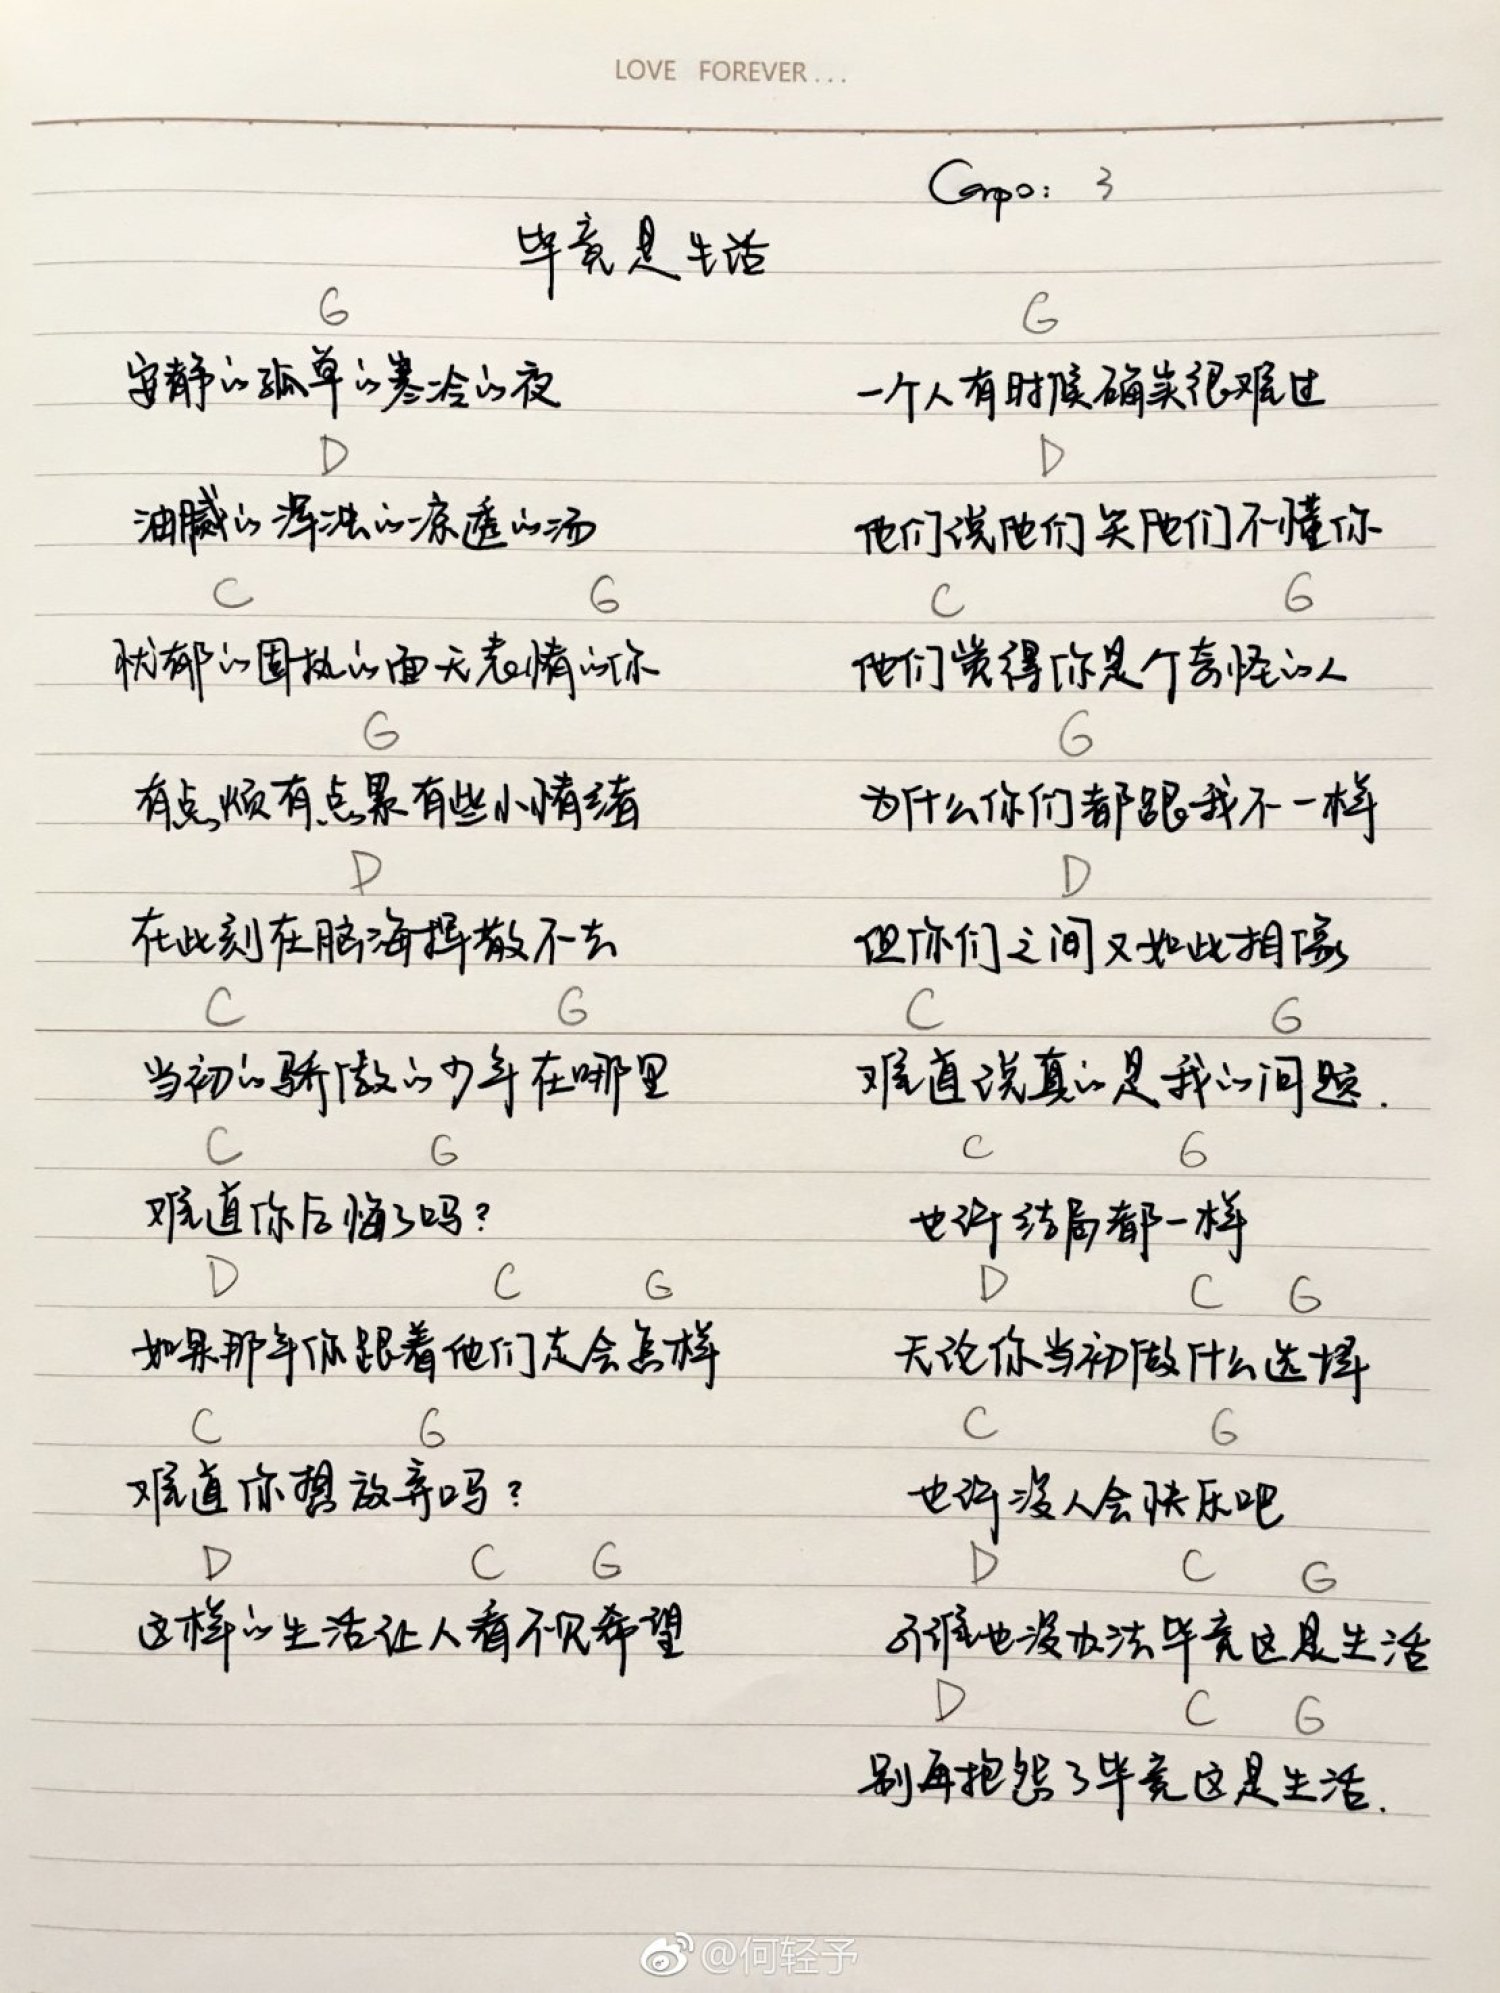 LOVE FOREVER...
Capo: 3
毕竟是生活
G
安静的孤单的寒冷的夜
D
油腻的浑浊的凉透的汤
C G
忧郁的固执的面无表情的你
G
有点烦有点累有些小情绪
D
在此刻在脑海挥散不去
C G
当初的骄傲的少年在哪里
C G
难道你后悔了吗?
D C G
如果那年你跟着他们走会怎样
C G
难道你想放弃吗?
D C G
这样的生活让人看不见希望
G
一个人有时候确实很难过
D
他们说他们笑他们不懂你
C G
他们觉得你是个奇怪的人
G
为什么你们都跟我不一样
D
但你们之间又如此相像
C G
难道说真的是我的问题.
C G
也许结局都一样
D C G
无论你当初做什么选择
C G
也许没人会快乐吧
D C G
谁也没办法毕竟这是生活
D C G
别再抱怨了毕竟这是生活.
@何轻予